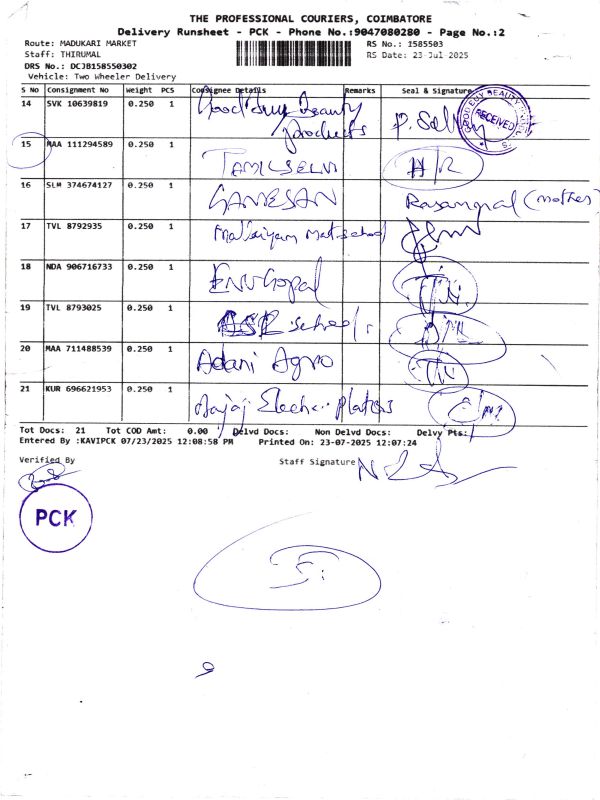 THE PROFESSIONAL COURIERS, COIMBATORE
Delivery Runsheet - PCK - Phone No.:9047080280 - Page No.:2
Route: MADUKARI MARKET RS No.: 1585503
Staff: THIRUMAL RS Date: 23-Jul-2025
DRS No.: DCJB158550302
Vehicle: Two Wheeler Delivery
S No Consignment No Weight PCS Consignee Details Remarks Seal & Signature
14 SVK 10639819 0.250 1 Beauty P. Selvy
Products
RECEIVED
15 MAA 111294589 0.250 1 TAMILSELVI H/R
16 SLM 374674127 0.250 1 GANESAN (mother)
17 TVL 8792935 0.250 1 school
18 NDA 906716733 0.250 1
19 TVL 8793025 0.250 1 school
20 MAA 711488539 0.250 1 Adani Agro
21 KUR 696621953 0.250 1 Platers
Tot Docs: 21 Tot COD Amt: 0.00 Delvd Docs: Non Delvd Docs: Delvy Pts:
Entered By :KAVIPCK 07/23/2025 12:08:58 PM Printed On: 23-07-2025 12:07:24
Verified By Staff Signature
PCK